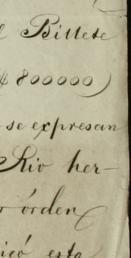 l Billete
$ 800000)
se expresan
Rio her-
r órden
icó esta